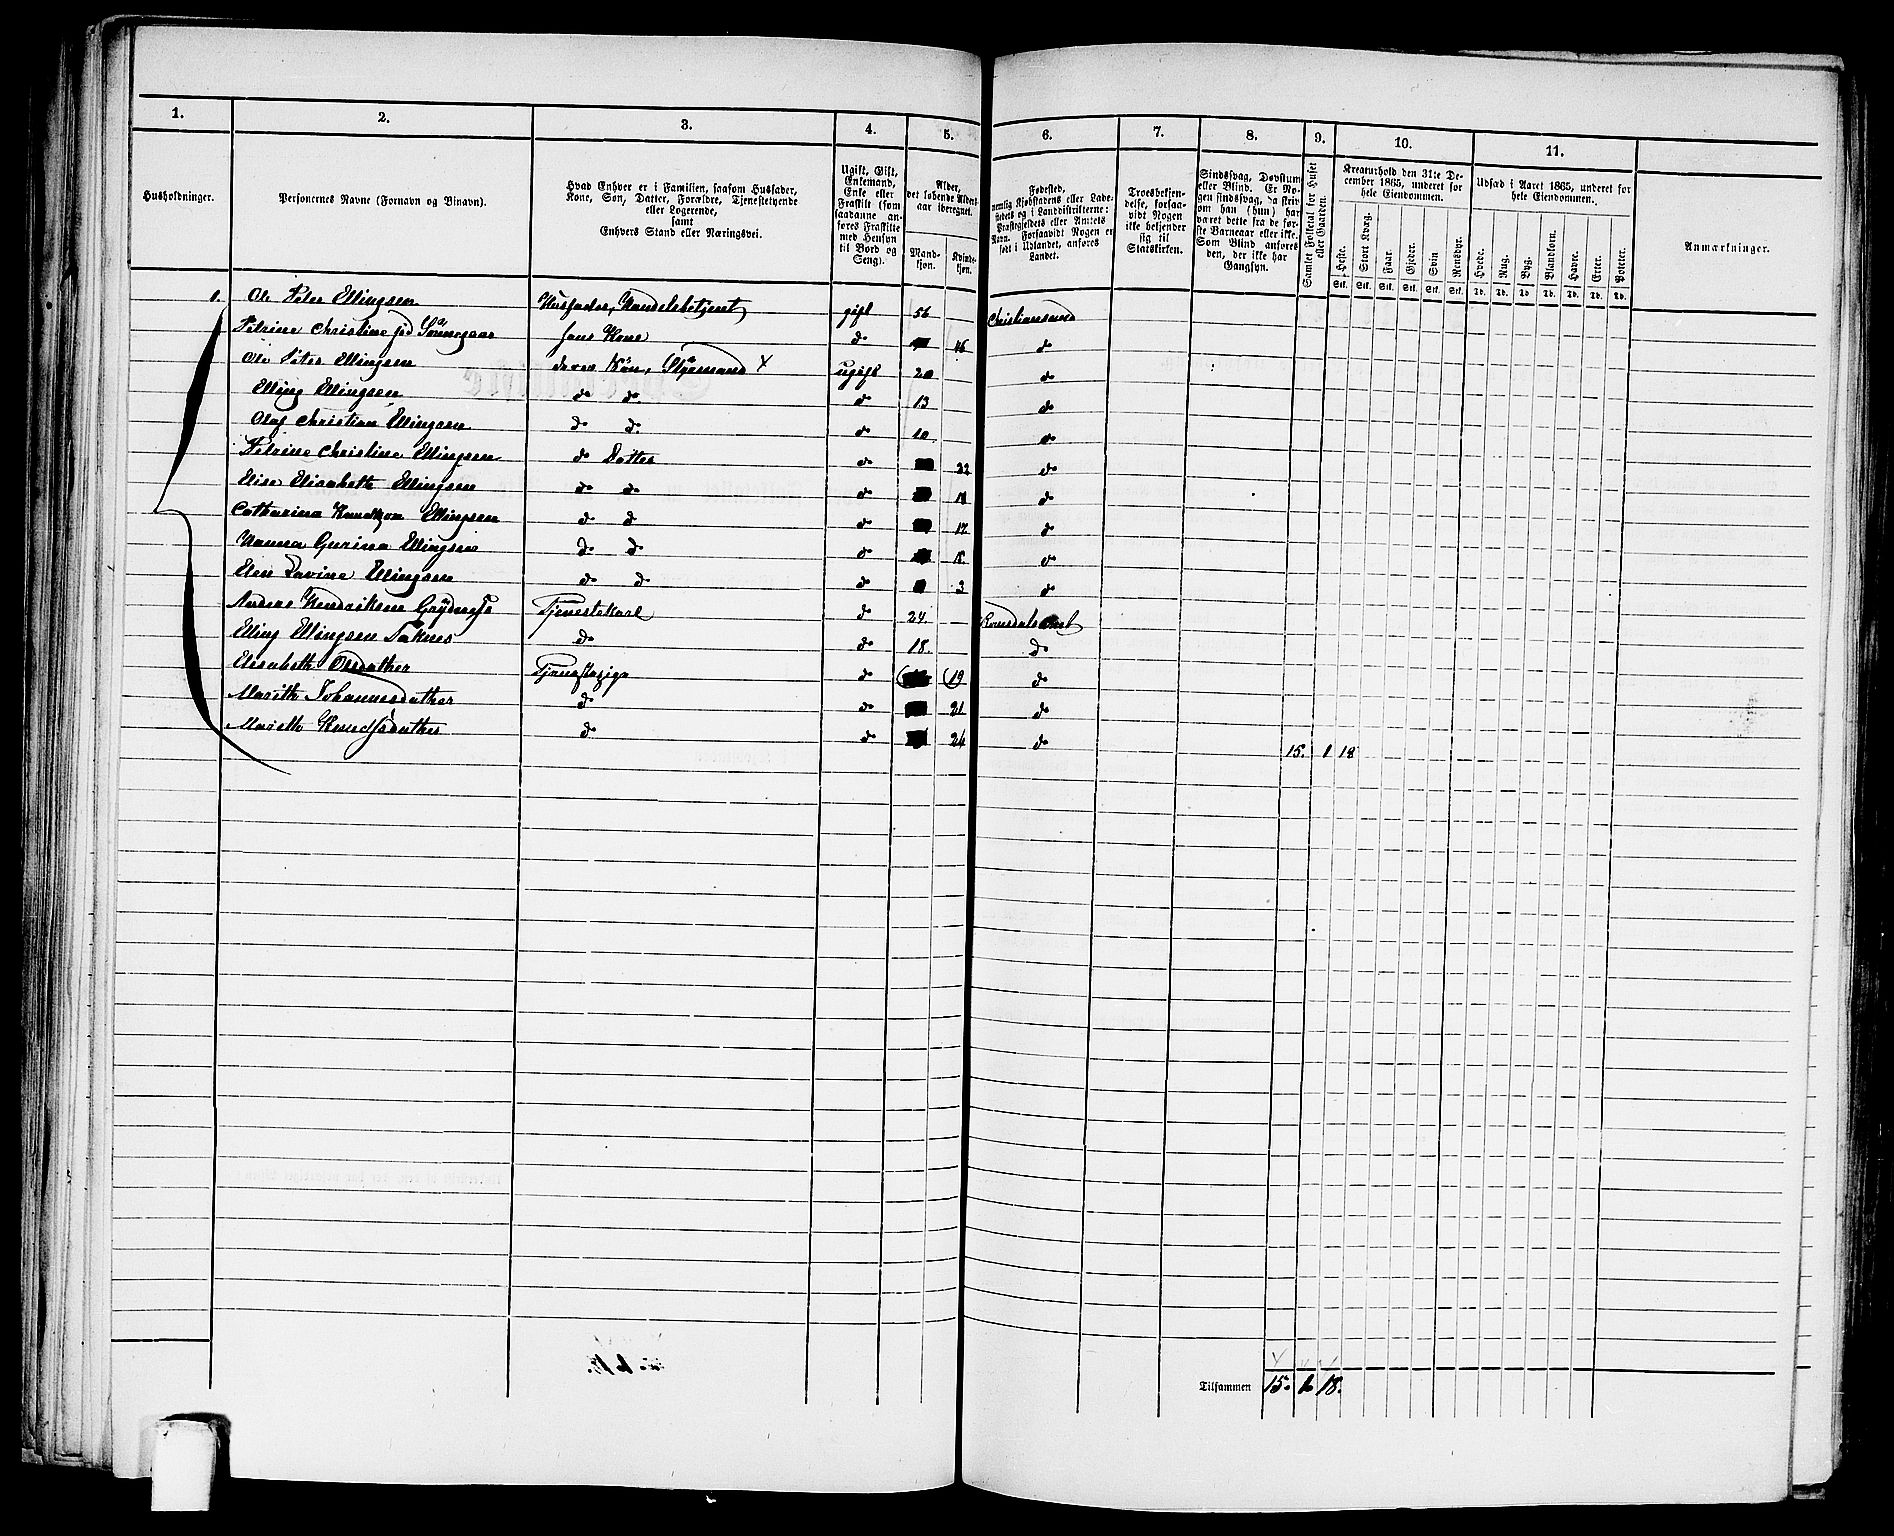 1. 2. 3. 4. 5. 6. 7. 8. 9. 10. 11.
Husholdninger.
Personernes Navne (Fornavn og Binavn).
Hvad Enhver er i Familien, saasom Husfader,
Kone, Søn, Datter, Forældre, Tjenestetyende
eller Logerende,
samt
Enhvers Stand eller Næringsvei.
Ugift, Gift,
Enkemand,
Enke eller
Fraskilt (som
saadanne an-
føres Fraskilte
med Hensyn
til Bord og
Seng).
Alder,
det løbende Alders-
aar iberegnet.
Mand-
kjøn.
Kvinde-
kjøn.
Fødested,
nemlig Kjøbstadens eller Lade-
stedets og i Landdistrikterne:
Præstegjeldets eller Amtets
Navn. Forsaavidt Nogen er
født i Udlandet, anføres
Landet.
Troesbekjen-
delse, forsaa-
vidt Nogen
ikke bekjender
sig til
Statskirken.
Sindssvag, Døvstum
eller Blind. Er No-
gen sindssvag, da skriv
om han (hun) har
været dette fra de før-
ste Barneaar eller ikke.
Som Blind anføres
den, der ikke har
Gangsyn.
Samlet Folketal for Huset
eller Gaarden.
Kreaturhold den 31te De-
cember 1865, underet for
hele Eiendommen.
Heste. Stort Kvæg. Faar. Gjeder. Svin Rensdyr.
Stk. Stk. Stk. Stk. Stk. Stk.
Udsæd i Aaret 1865, underet for
hele Eiendommen.
Hvede. Rug. Byg. Blandkorn. Havre. Erter. Poteter.
Td. Td. Td Td. Td. Td. Td.
Anmærkninger.
1. Ole Peter Ellingsen Husfader, Handelsbetjent gift 56 Christiansund
Petrine Christine fød hans Kone do 46 do
Ole Peter Ellingsen deres Søn, Styrmand X ugift 20 do
Elling Ellingsen do do do 13 do
Olaf Christian Ellingsen do do do 10 do
Petrine Christine Ellingsen do Datter do 22 do
Elise Elisabeth Ellingsen do do do 18 do
Catharina Knudtzon Ellingsen do do do 12 do
Hanna Gurina Ellingsen do do do 8 do
Elen Davine Ellingsen do do do 3 do
Anders Hendriksen Tjenestekarl do 24. Romsdals Amt
Elling Ellingsen do do 18. do
Elisabeth Olsdatter Tjenestepige do 19 do
Marith Johannesdatter do do 21 do
Marith Knudsdatter do do 24 do 15. 1 18
Tilsammen 15. 1. 18.